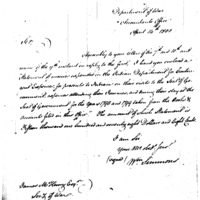 Department of War
Accountants Office
April 14th 1800
Sir,
Agreeably to your letter of the 7th and 10th
and mine of the 9th instant in reply to the first, I send you inclosed a
Statement of monies expended in the Indian Department for
and Expences, for presents to Indians on their visits to the Seat of Government
expences attending their Journies, and during their stay at the
Seat of Government for the Years 1798 and 1799 taken from the Books &
accounts filed in this Office. The amount of which Statement is
Fifteen thousand one hundred and seventy eight Dollars and Eighty Cents
I am Sir
Your Mo Obt Servt
(signed) Wm Simmons
James McHenry Esqr
Secty of War